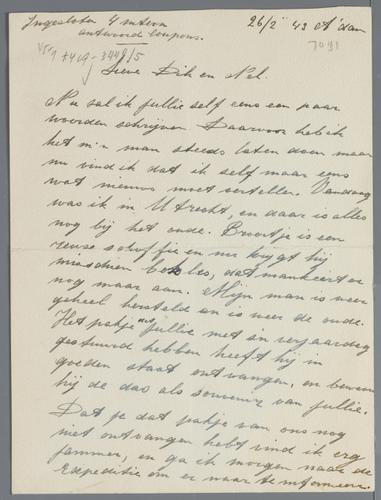 Ingesloten 4 intern
antwoord coupons.
26/2 43 A'dam
Lieve Dik en Nel.
Nu zal ik jullie self eens een paar
woorden schrijven Daarvoor heb ik
het m'n man steeds laten doen maar
nu vind ik dat ik self maar eens
wat nieuws moet vertellen. Vandaag
was ik in Utrecht, en daar is alles
nog bij het oude. Broertje is een
reuze schoffie en nu krijgt hij
misschien les, dat mankeert er
nog maar aan. Mijn man is weer
geheel hersteld en is weer de oude.
Het pakje wat jullie met z'n verjaardag
gestuurd hebben heeft hij in
goeden staat ontvangen, en bewaart
hij de das als souvenir van jullie.
Dat je dat pakje van ons nog
niet ontvangen hebt vind ik erg
jammer, en ga ik morgen naar de
Expeditie om er naar te informeeren.